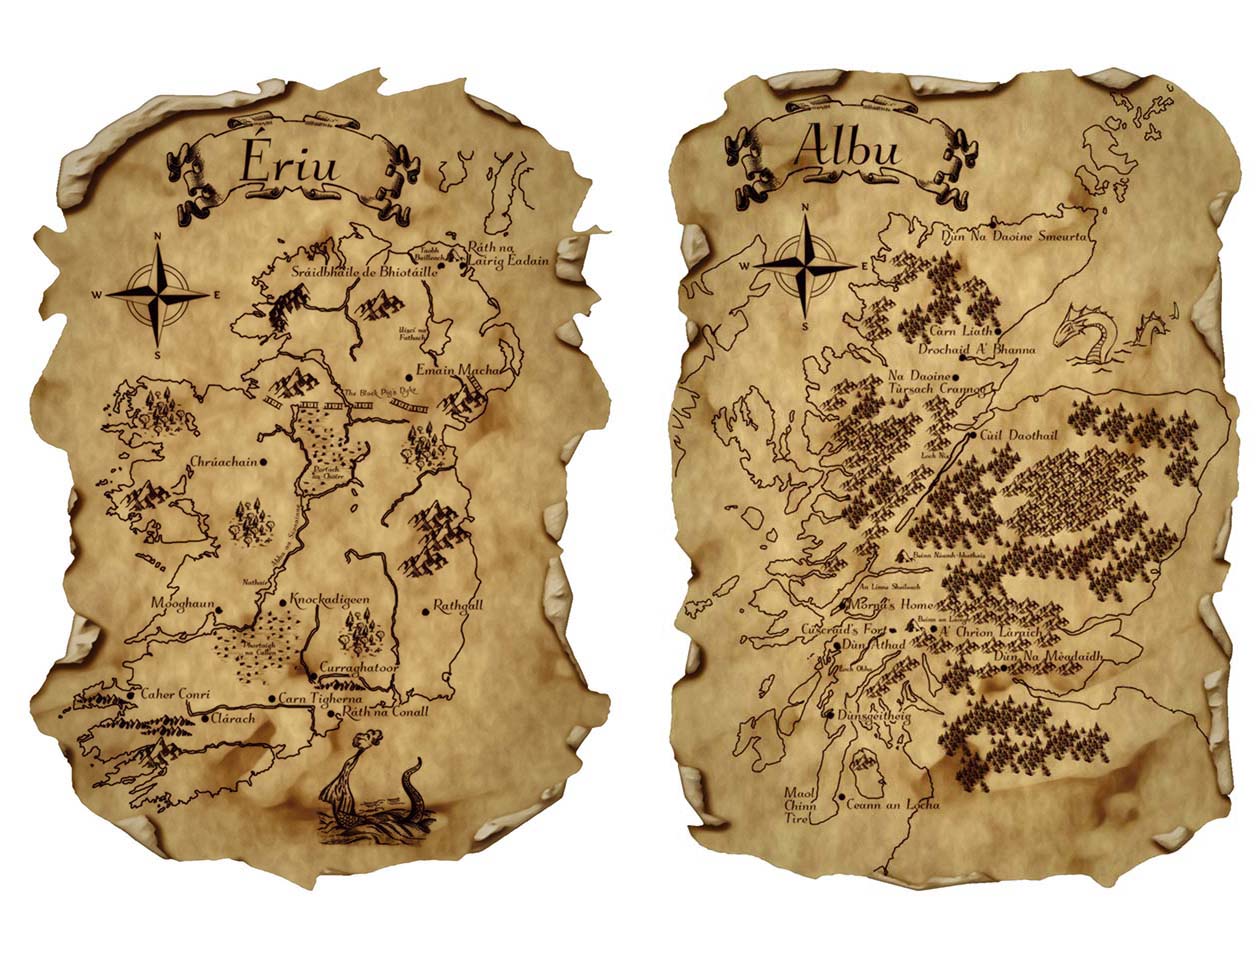 Ériu
N
W
E
S
Taobh
Builleach
Ráth na
Lairig Éadain
Sráidbhaile de Bhiotáille
Uiscí na
Fathach
Emain Macha
The Black Pig's Dyke
Chrúachain
Portach
Nathair
Abha na
Mooghaun
Knockadigeen
Rathgall
na Callan
Curraghatoor
Caher Conri
Carn Tigherna
Clárach
Ráth na Conall
Albu
N
W
E
S
Dùn Na Daoine Smeurta
Càrn Liath
Drochaid A' Bhanna
Na Daoine
Tùrsach Crannog
Cùil Daothail
Loch Nis
Beinn
An Linne Sheileach
Morna's Home
Cúscraid's Fort
A' Chrìon Làraich
Dùn Athad
Dùn Na Mèadaidh
Dùnsgeitheig
Maol
Chinn
Tìre
Ceann an Locha